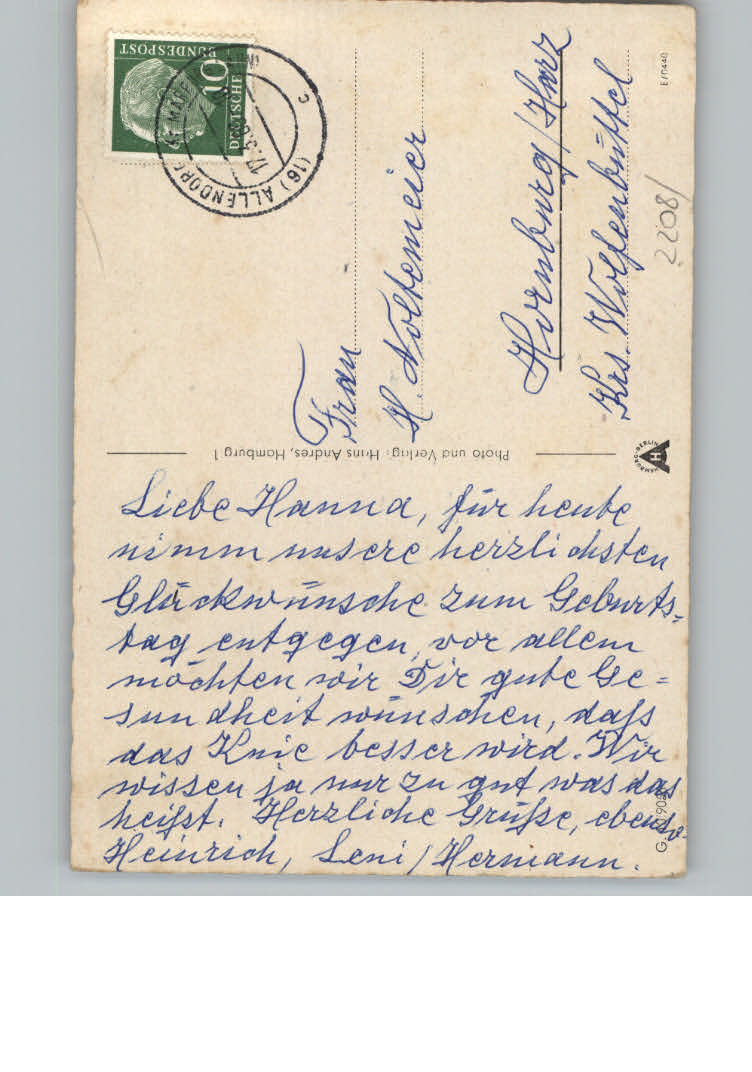 BUNDESPOST
10
DEUTSCHE
(16) ALLENDORF
c
Frau
H. Noltemeier
Hornburg/Harz
Krs. Wolfenbüttel
2208/
E/0440
Photo und Verlag: Hans Andres, Hamburg 1
HAMBURG-BERLIN
H
Liebe Hanna, für heute
nimm unsere herzlichsten
Glückwünsche zum Geburts-
tag entgegen, vor allem
möchten wir Dir gute Ge=
sundheit wünschen, daß
das Knie besser wird. Wir
wissen ja nur zu gut was das
heißt. Herzliche Grüße, ebenso
Heinrich, Leni / Hermann.